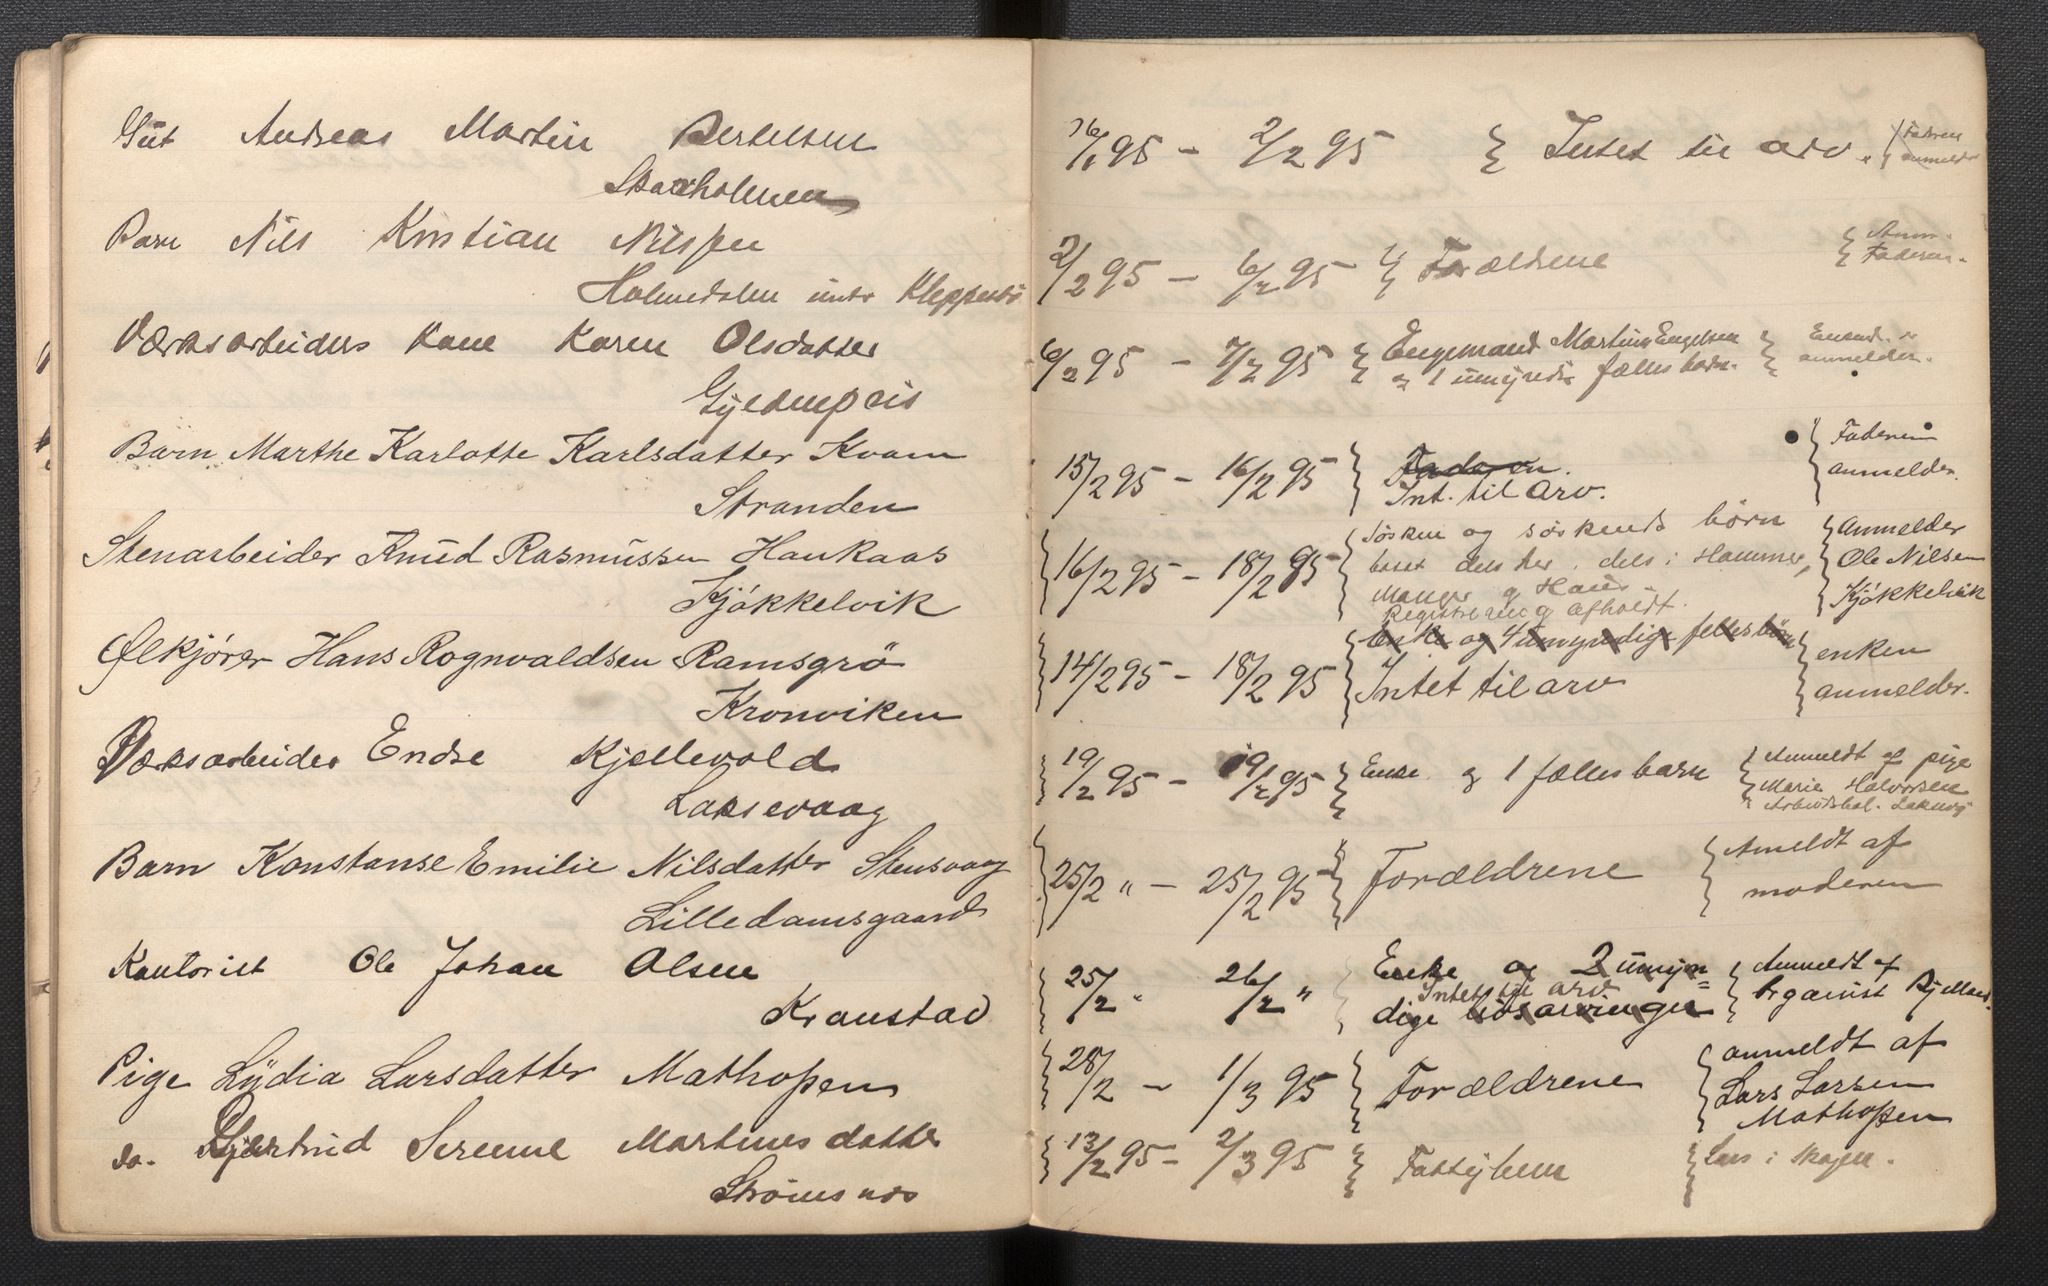 Gut Andreas Martin Bertelsen
Skarholmen
Barn Nils Kristian Nilsen
Holmedalen under Kleppestø
Værksarbeiders Kone Karen Olsdatter
Gyldenpris
Barn Marthe Karlotte Karlsdatter Kvam
Stranden
Stenarbeider Knud Rasmussen Haukaas
Kjøkkelvik
Ølkjører Hans Rognvaldsen Ramsgrø
Kronviken
Værksarbeider Endre Kjellevold
Laksevaag
Barn Konstanse Emilie Nilsdatter Stensvaag
Lilledamsgaard
Kontorist Ole Johan Olsen
Kranstad
Pige Lydia Larsdatter Mathopen
do. Gjertrud Serene Martinusdatter
Strømsnes
16/1 95 - 2/2 95 Intet til arv. Faderen
anmelder
2/2 95 - 6/2 95 Forældrene Anm.
Faderen.
6/2 95 - 7/2 95 Engemand Martin Engelsen Enkem.
og 1 umyndig fælles barn. anmelder.
15/2 95 - 16/2 95 Faderen. Faderen
Int. til arv. anmelder.
16/2 95 - 18/2 95 Søsken og søskends børn Anmelder
boset dels her, dels i Hammer, Ole Nilsen
Manger og Haus. Kjøkkelvik
Registrering afholdt.
14/2 95 - 18/2 95 Enke og 4 umyndige felles børn enken
Intet til arv anmelder.
19/2 95 - 19/2 95 Enke og 1 fælles barn Anmeldt af pige
Marie Halvorsen
Arbeidsbol. Laksevg
25/2 " - 25/2 95 Forældrene Ameldt af
moderen
25/2 " 26/2 " Enke og 2 umyn= Anmeldt af
Intet til arv organist Bjelland.
dige livsarvinger
28/2 - 1/3 95 Forældrene anmeldt af
Lars Larsen
Mathopen
13/2 95 - 2/3 95 Fattiglem Lars i Skogen.